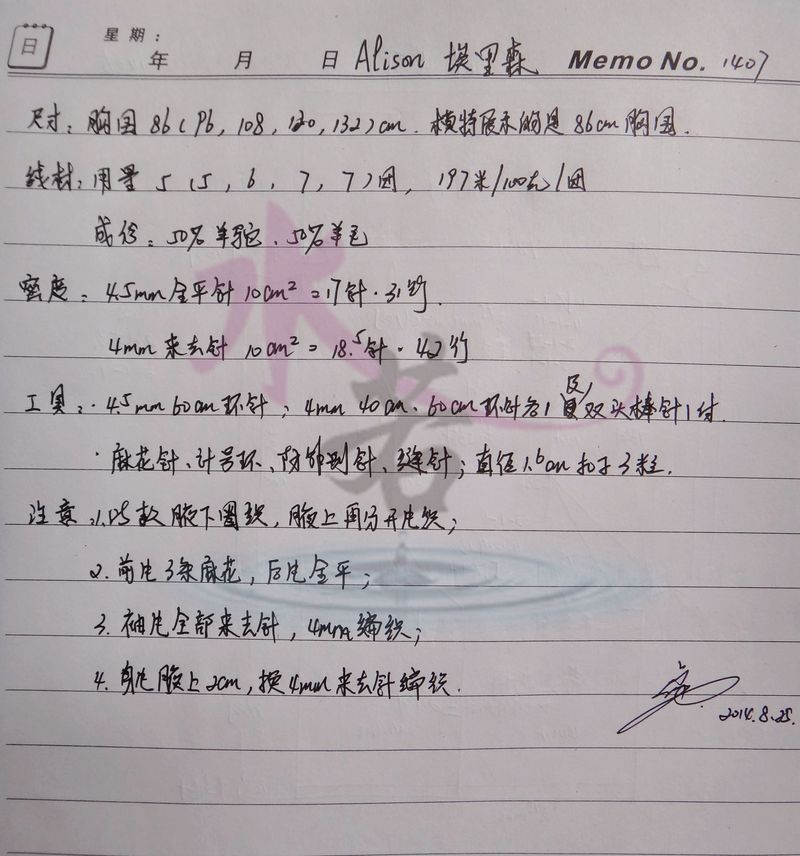 日
星期：
年 月 日 Alison 埃里森 Memo No. 1407
尺寸：胸围 86（96，108，120，132）cm．模特展示的是 86cm 胸围．
线材：用量 5（5，6，7，7）团，197米/100克/团
成份：50%羊驼、50%羊毛
密度：4.5mm全平针 10cm²＝17针·31行．
4mm来去针 10cm²＝18.5针·42行
工具：·4.5mm 60cm环针；4mm 40cm、60cm环针各1 及 双头棒针1付．
·麻花针、计号环、防卸别针、缝针；直径1.6cm扣子3粒．
注意：1.此款腋下圈织，腋上再分开片织；
2.前片3条麻花，后片全平；
3.袖片全部来去针，4mm编织；
4.身片腋上2cm，换4mm来去针编织．
2014.8.25.
水
若